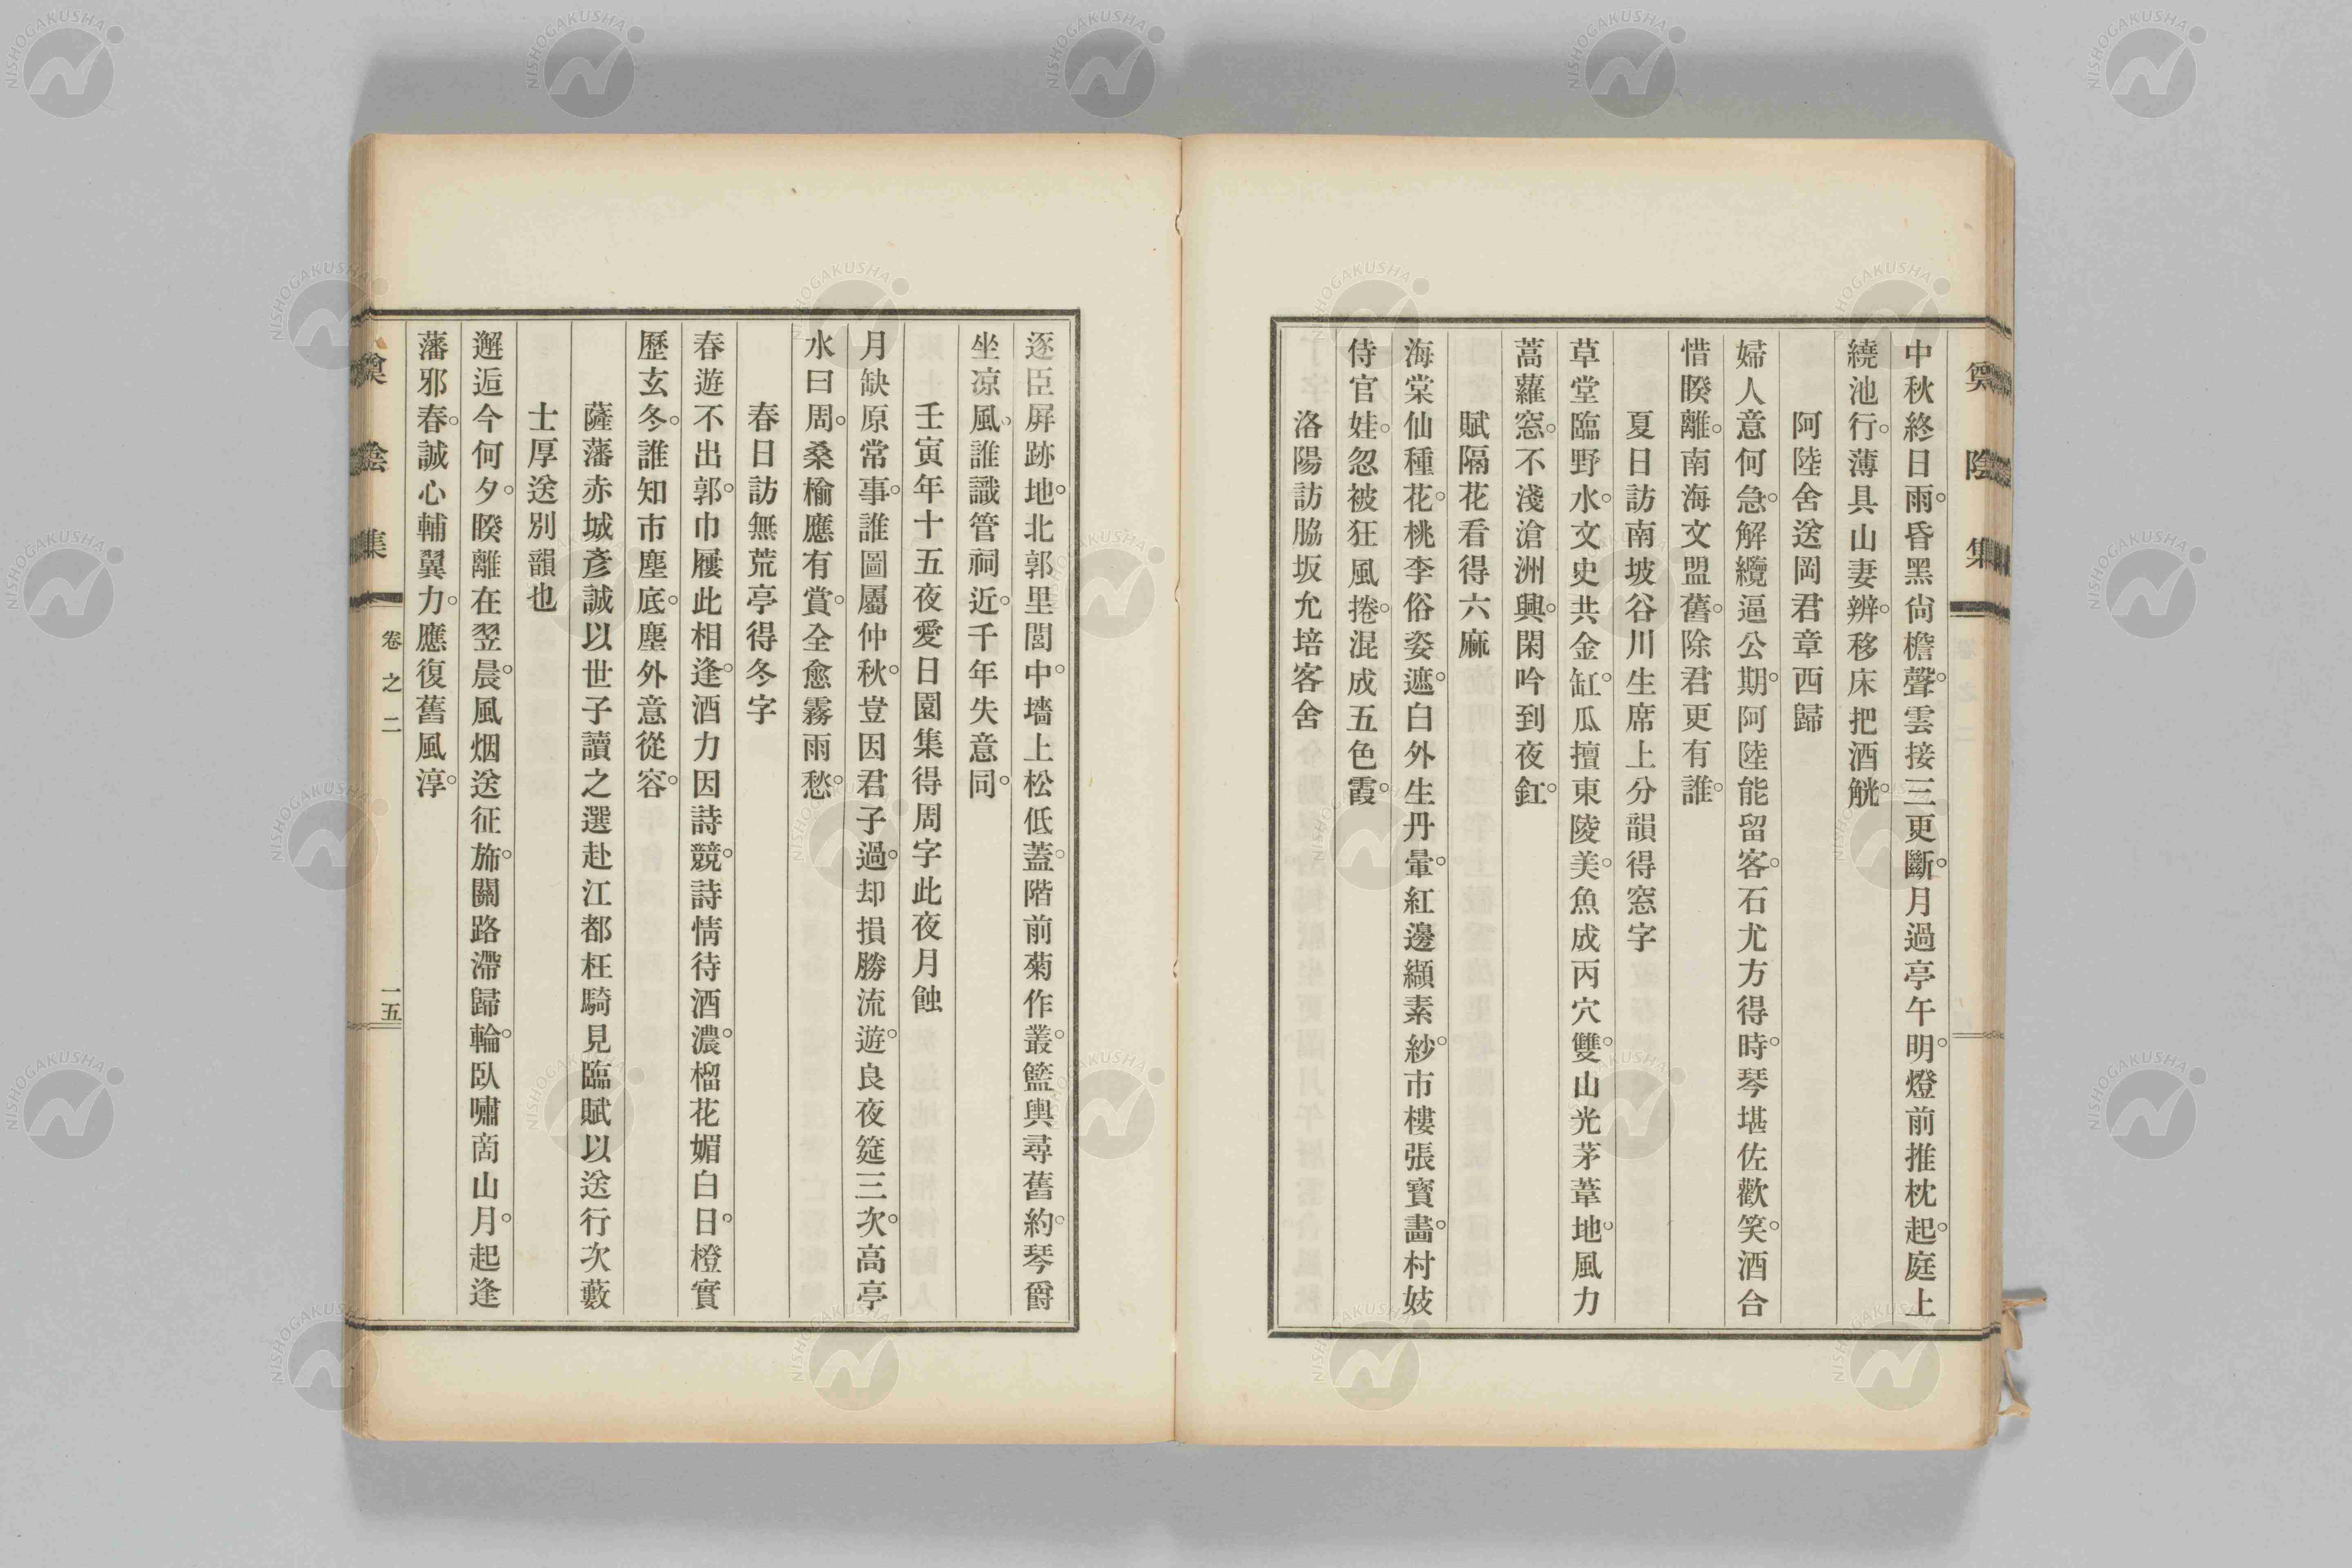 中秋終日雨。昏黑尙檐聲。雲接三更斷。月過亭午明。燈前推枕起。庭上
繞池行。薄具山妻辨。移床把酒觥。
阿陸舍送岡君章西歸
婦人意何急。解纜逼公期。阿陸能留客。石尤方得時。琴堪佐歡笑。酒合
惜睽離。南海文盟舊。除君更有誰。
夏日訪南坡谷川生席上分韻得窓字
草堂臨野水。文史共金缸。瓜擅東陵美。魚成丙穴雙。山光茅葦地。風力
蒿蘿窓。不淺滄洲興。閑吟到夜釭。
賦隔花看得六麻
海棠仙種花。桃李俗姿遮。白外生丹暈。紅邊纈素紗。市樓張寳畵。村妓
侍官娃。忽被狂風捲。混成五色霞。
洛陽訪脇坂允培客舍
逐臣屛跡地。北郭里閭中。墻上松低蓋。階前菊作叢。籃輿尋舊約。琴爵
坐凉風。誰識管祠近。千年失意同。
壬寅年十五夜愛日園集得周字此夜月蝕
月缺原常事。誰圖屬仲秋。豈因君子過。却損勝流遊。良夜筵三次。高亭
水曰周。桑楡應有賞。全愈霧雨愁。
春日訪無荒亭得冬字
春遊不出郭。巾屨此相逢。酒力因詩競。詩情待酒濃。榴花媚白日。橙實
歷玄冬。誰知市塵底。塵外意從容。
薩藩赤城彥誠以世子讀之選赴江都枉騎見臨賦以送行次藪
士厚送別韻也
邂逅今何夕。睽離在翌晨。風烟送征斾。關路滯歸輪。臥嘯啇山月。起逢
藩邪春。誠心輔翼力。應復舊風淳。
陰集
卷之二
一五
NISHOGAKUSHA